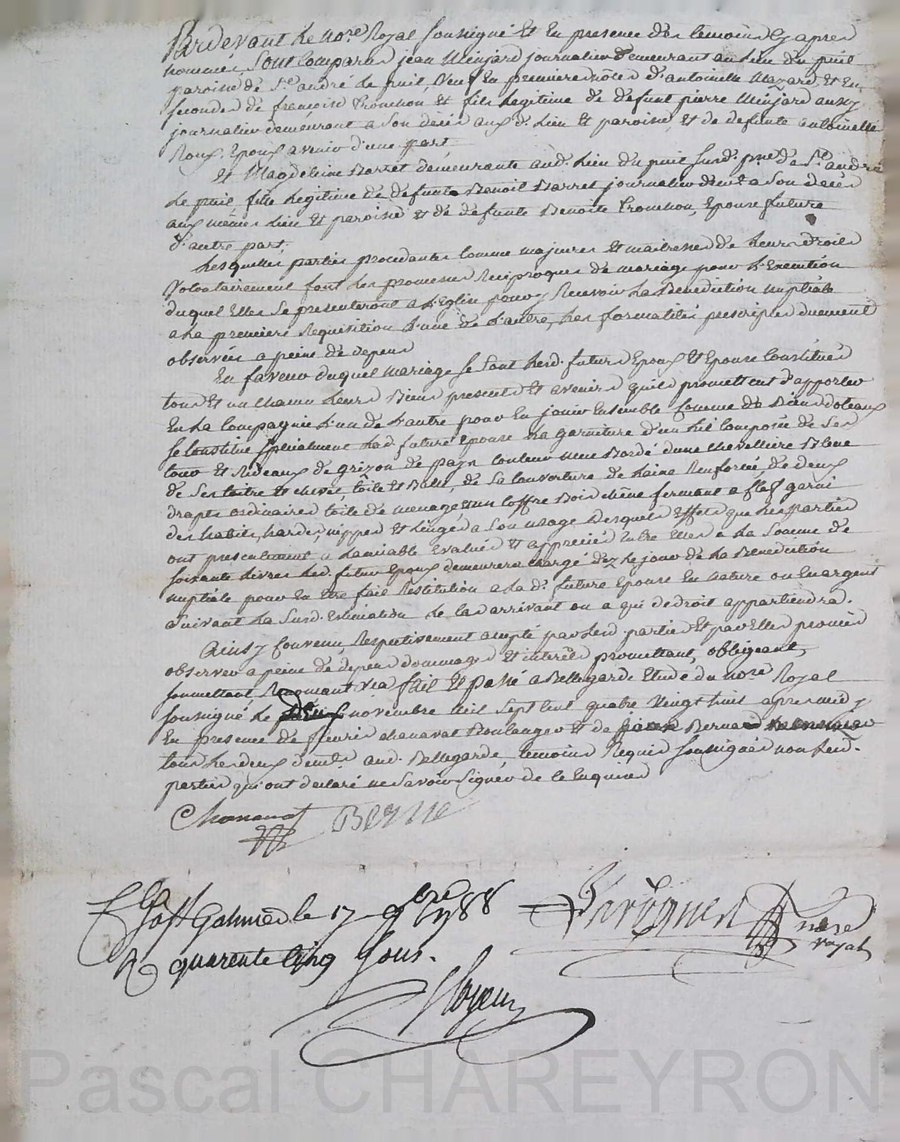 Pardevant le nore. Royal soussigné et en presence des temoins cy apres
nommés sont comparus jean Minjard journalier demeurant au lieu du puil
paroisse de St. andré le puil, veuf en premiere nôces d'antoinette Mazard, et en
seconde de françoise Tronchon et fils legitime de defunt pierre Minjard aussy
journalier demeurant a son déces aux d. lieu et paroisse, et de defunte antoinette
Roux. Epoux avenir d'une part
Et Magdeleine Barret demeurante aud. lieu du puil susd. psse. de St. andré
le puil fille legitime de défunts Benoit Barret journalier demt. a son déces
aux mêmes lieu et paroisse et de défunte Benoite Tronchon, Epouse future
d'autre part.
Lesquelles parties procedantes comme majeures et maitresses de leurs droits
volontairement font les promesses reciproques de mariage pour l'Execution
duquel Elles se presenteront a l'Eglise pour y recevoir la Benediction nuptiale
a la premiere requisition l'une de l'autre, les formalités prescriptes duement
observées a peine de depens
En faveur duquel mariage se sont lesd. futurs Epoux et Epouse constitués
tous et un chacun leurs Biens presents et avenirs quils promettent d'apporter
En la compagnie l'un de l'autre pour en jouir Ensemble comme de Biens dotaux
se constitue specialement lad. future Epouse la garniture d'un lit composée de ses
tour et rideaux de grizon de pays couleur bordé d'une chevelliere Bleue
de ses coitre et chevet, toile et Balle, de sa couverture de laine renforcée de deux
draps ordinaires toile de menage et un coffre Bois chêne fermant a clef garni
des habits, hardes, nippes et linges a son usage desquels Effets que les parties
ont presentement a lamiable Evalués et appreciés Entre Elles a la somme de
soixante livres led. futur Epoux demeurera chargé dez le jour de la Benediction
nuptiale pour en être fait restitution a lad. future Epouse En nature ou en argent
suivant la susd. Estimation le cas arrivant ou a qui de droit appartiendra.
Ainsy convenu, respectivement accepté par lesd. parties et par Elles promis
observer a peine de depens dommages et interêts promettant, obligeant,
soumettant renonçant &ca fait et passé a Bellegarde Etude du nore. Royal
soussigné le novembre mil sept cent quatre vingt huit apres midy
En presence de fleuris chanavat Boulanger et de Bernard
tous les deux demts. aud. Bellegarde, temoins requis soussignés non lesd.
parties qui ont declaré ne savoir signer de ce Enquises
Chanavat Berne
St Galmier le 17 9bre 1788
R quarente cinq sous.
nore
royal